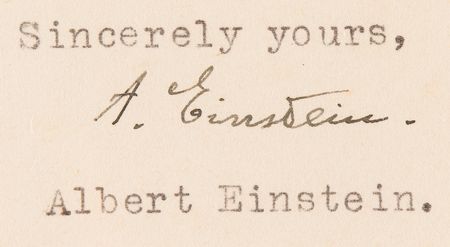 Sincerely yours,
A. Einstein.
Albert Einstein.